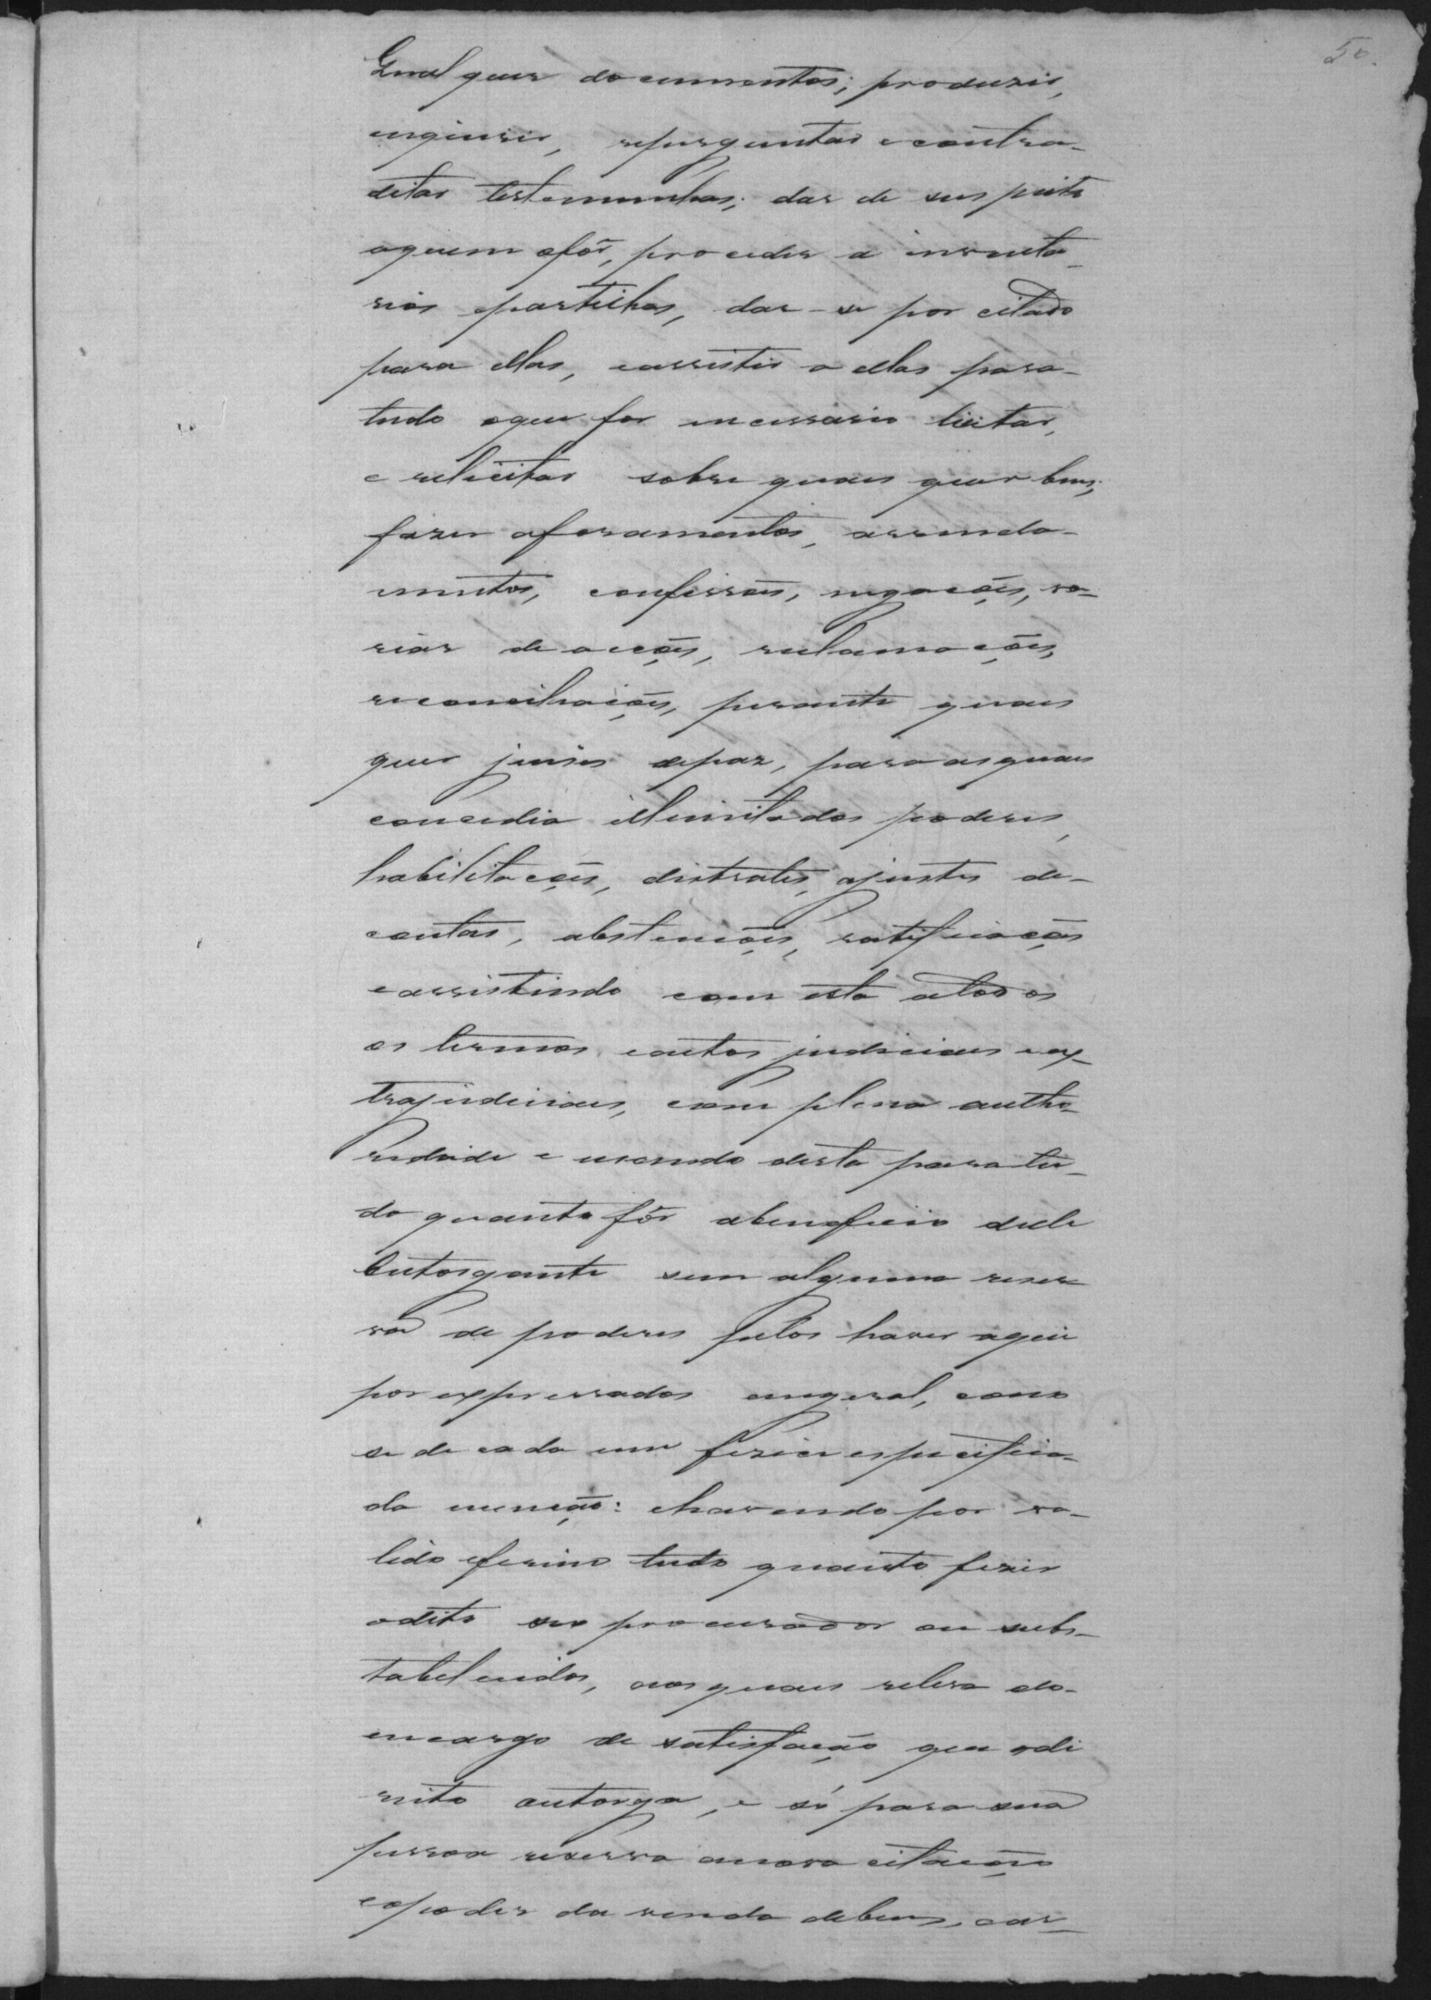 50.
Qualquer documentos; produzir,
inquerir, reperguntar e contra-
ditar testemunhas; dar de suspeito
aquem ofôr, proceder a inventa-
rios epartilhas, dar-se por citado
para ellas, eassistir a ellas para
tudo oque for necessario licitar,
e relicitar sobre quaes quer bens;
fazer aforamentos, arrenda-
mentos, confissões, negações, va-
riar de acções, reclamações,
reconciliações, perante quaes
quer juises depaz, para asquaes
concedia illimitados poderes,
habilitações, distrates, ajustes de
contas, abstenções, ratificações
eassistindo com esta atodos
os termos eautos judiciaes eex-
trajudiciaes, com plena autho-
ridade e usando desta para tu-
do quanto fôr abeneficio delle
outorgante sem alguma reser
va de poderes pelos haver aqui
por expressados emgeral, como
se de cada um fizesse especifica-
da menção: ehavendo por va-
lido efirme tudo quanto fizer
odito seu procurador ou subs-
tabelecidos, aos quaes releva do
encargo de satisfação que odi
reito outorga, e só para sua
pessoa reserva anova citação
eopoder da venda debens, cau-